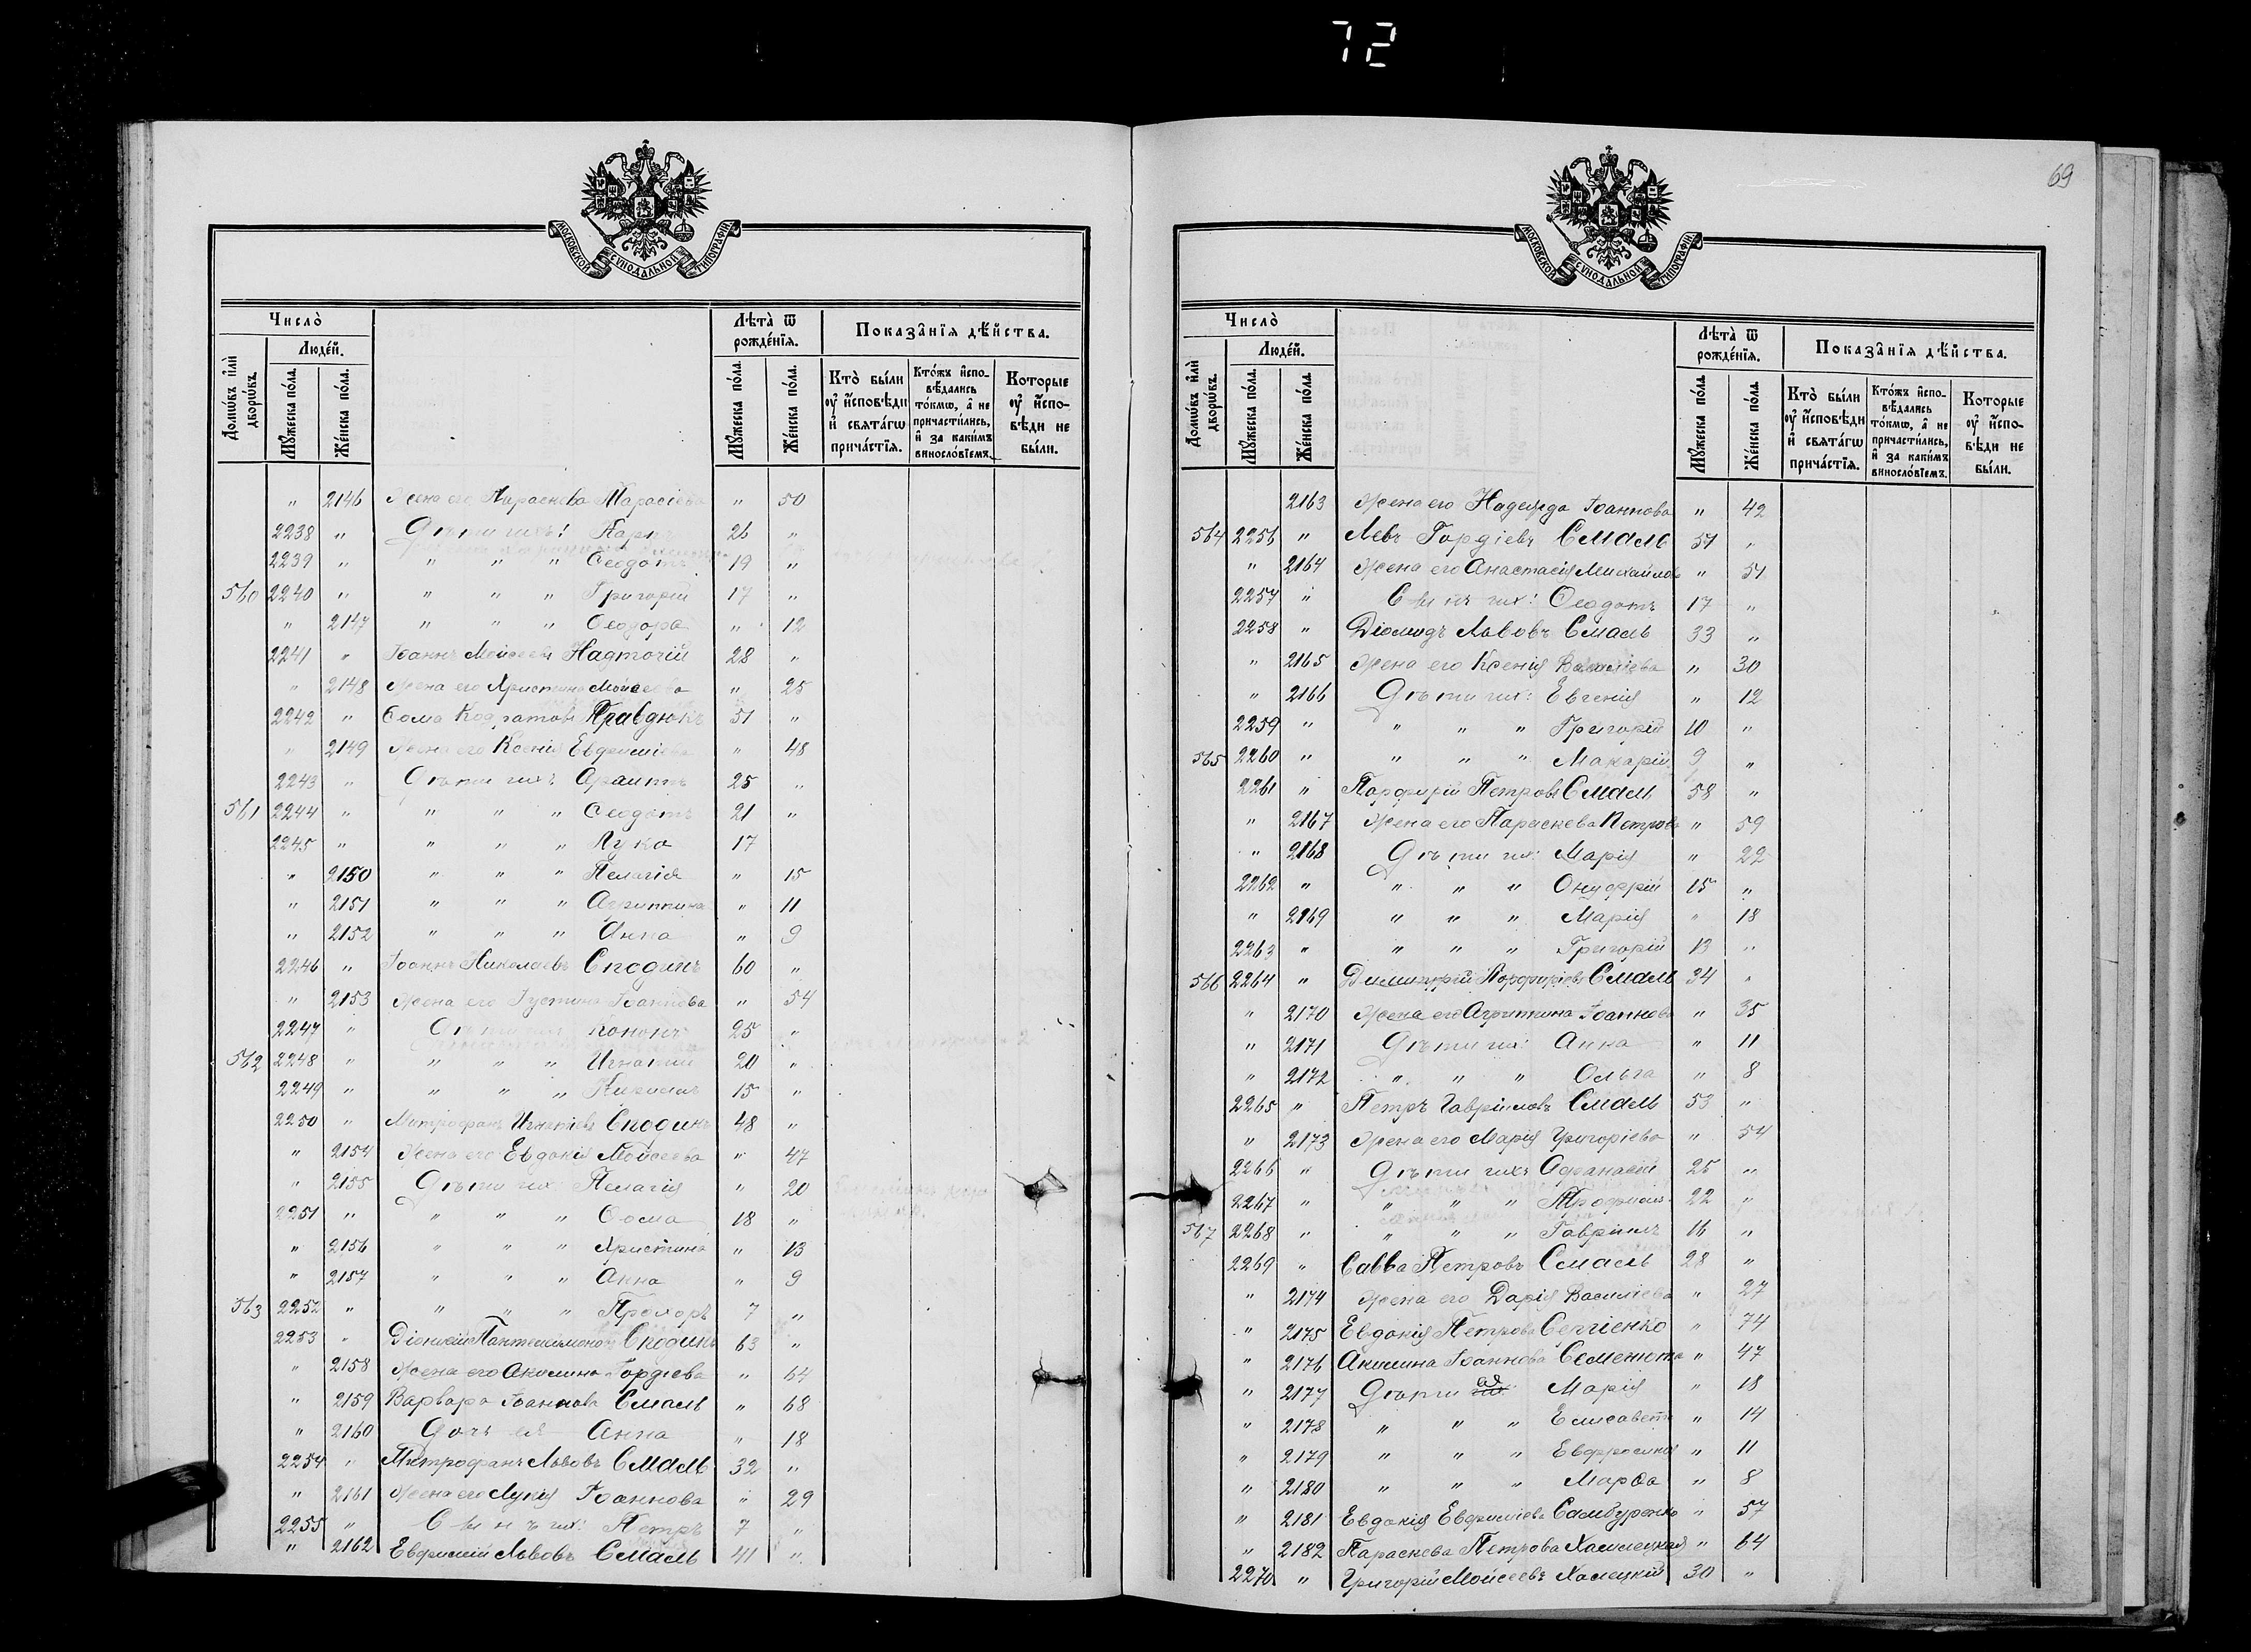 72
69
МОСКОВСКОЙ СѴНОДАЛЬНОЙ ТИПОГРАФІИ.
Число̀
Людéй.
Домѡ́въ и҆лѝ дворѡ́въ.
Мꙋ́жеска по́ла.
Же́нска по́ла.
Лѣ́та ѿ рожде́нїѧ.
Мꙋ́жеска по́ла.
Же́нска по́ла.
Показа̑нїѧ дѣ́йства.
Кто̀ бы́ли ᲂу҆ и҆сповѣ́ди и҆ свѧта́гѡ прича́стїѧ.
Кто́жъ и҆сповѣ́дались то́кмѡ, а҆ не причасти́лись, и҆ за каки́мъ винослóвїемъ.
Которые ᲂу҆ и҆сповѣ́ди не бы́ли.
" 2146 Жена его Параскева Тарасіева " 50
2238 " Дѣти ихъ: Карпъ 26 "
2239 " " " " Ѳеодотъ 19 "
560 2240 " " " " Григорій 17 "
" 2147 " " " Ѳеодора " 12
2241 " Іоаннъ Моисеевъ Надточій 28 "
" 2148 Жена его Христина Моисеева " 25
2242 " Ѳома Кодратовъ Правдюкъ 51 "
" 2149 Жена его Ксенія Евфиміева " 48
2243 " Дѣти ихъ 25 "
561 2244 " " " " Ѳеодотъ 21 "
2245 " " " " Лука 17
" 2150 " " " Пелагія " 15
" 2151 " " " Агриппина " 11
" 2152 " " " Анна " 9
2246 " Іоаннъ Николаевъ Сподинъ 60 "
" 2153 Жена его Іустина Іоаннова " 54
2247 " Дѣти ихъ Кононъ 25 "
562 2248 " " " " Игнатій 20 "
2249 " " " " Кириллъ 15 "
2250 " Митрофанъ Игнатіевъ Сподинъ 48 "
" 2154 Жена его Евдокія Моисеева " 47
" 2155 Дѣти ихъ: Пелагія " 20
2251 " " " " Ѳома 18 "
" 2156 " " " Христина " 13
" 2157 " " " Анна " 9
563 2252 " " " " Прохоръ 7 "
2253 " Діонисій Пантелеимоновъ Сподинъ 63 "
" 2158 Жена его Акилина Гордіева " 64
" 2159 Варвара Іоаннова Смаль " 68
" 2160 Дочь ея Анна " 18
2254 " Митрофанъ Львовъ Смаль 32 "
" 2161 Жена его Лукія Іоаннова " 29
2255 " Сынъ ихъ: Петръ 7 "
" 2162 Евфимій Львовъ Смаль 41 "
МОСКОВСКОЙ СѴНОДАЛЬНОЙ ТИПОГРАФІИ.
Число̀
Людéй.
Домѡ́въ и҆лѝ дворѡ́въ.
Мꙋ́жеска по́ла.
Же́нска по́ла.
Лѣ́та ѿ рожде́нїѧ.
Мꙋ́жеска по́ла.
Же́нска по́ла.
Показа̑нїѧ дѣ́йства.
Кто̀ бы́ли ᲂу҆ и҆сповѣ́ди и҆ свѧта́гѡ прича́стїѧ.
Кто́жъ и҆сповѣ́дались то́кмѡ, а҆ не причасти́лись, и҆ за каки́мъ винослóвїемъ.
Которые ᲂу҆ и҆сповѣ́ди не бы́ли.
2163 Жена его Надежда Іоаннова " 42
564 2256 " Левъ Гордіевъ Смаль 51 "
" 2164 Жена его Анастасія Михайлова " 51
2257 " Сынъ ихъ: Ѳеодотъ 17 "
2258 " Діомидъ Львовъ Смаль 33 "
" 2165 Жена его Ксенія Василіева " 30
" 2166 Дѣти ихъ: Евгенія " 12
2259 " " " " Григорій 10 "
565 2260 " " " " Макарій 9 "
2261 " Порфирій Петровъ Смаль 58 "
" 2167 Жена его Параскева Петрова " 59
" 2168 Дѣти ихъ: Марія " 22
2262 " " " " Онуфрій 15 "
" 2169 " " " Марія " 18
2263 " " " " Григорій 13 "
566 2264 " Димитрій Порфиріевъ Смаль 34 "
" 2170 Жена его Агриппина Іоаннова " 35
" 2171 Дѣти ихъ: Анна " 11
" 2172 " " " Ольга " 8
2265 " Петръ Гавріиловъ Смаль 53 "
" 2173 Жена его Марія Григоріева " 54
2266 " Дѣти ихъ Аѳанасій 25 "
2267 " " " " Трофимъ 22 "
567 2268 " " " " Гавріилъ 16 "
2269 " Савва Петровъ Смаль 28 "
" 2174 Жена его Дарія Василіева " 27
" 2175 Евдокія Петрова Сергіенко " 74
" 2176 Акилина Іоаннова Семенюта " 47
" 2177 Дѣти ея Марія " 18
" 2178 " " " Елисавета " 14
" 2179 " " " Евфросинія " 11
" 2180 " " " Марѳа " 8
" 2181 Евдокія Евфиміева Самбуренко " 57
" 2182 Параскева Петрова Халецкая " 64
2270 " Григорій Моисеевъ Халецкій 30 "